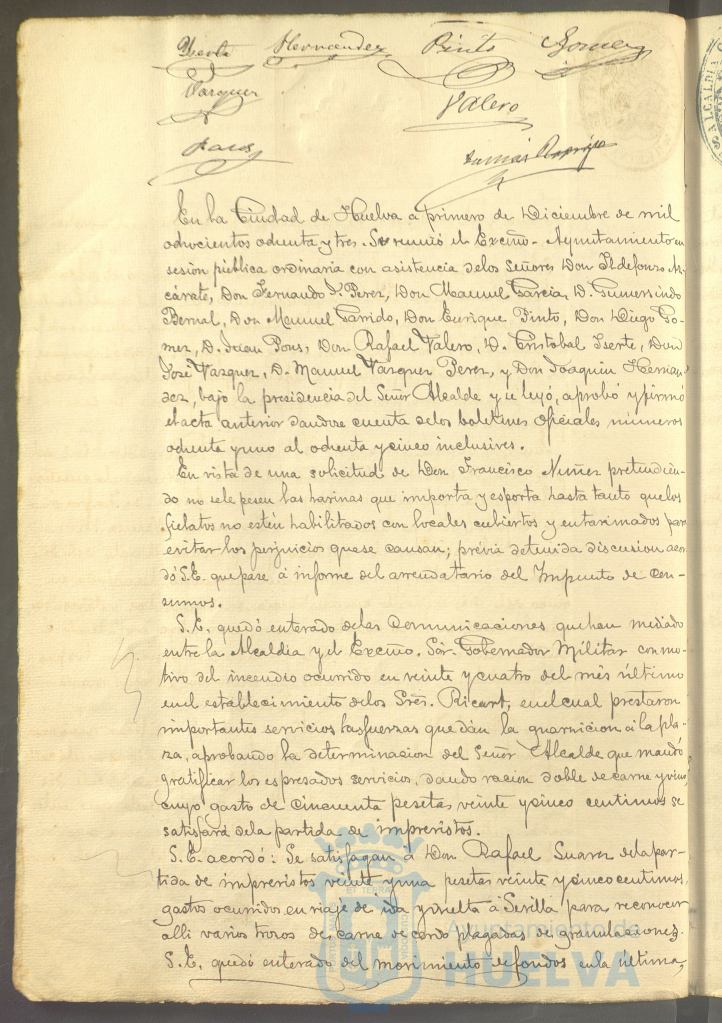 Iserte Hernandez Pinto Gomez
Vazquez
Valero
En la Ciudad de Huelva a primero de Diciembre de mil
ochocientos ochenta y tres. Se reunió el Excmo. Ayuntamiento en
sesion pública ordinaria con asistencia delos Señores Don Ildefonso Az-
cárate, Don Fernando J. Perez, Don Manuel Garcia, D. Gumersindo
Bernal, Don Manuel Garrido, Don Enrique Pinto, Don Diego Go-
mez, D. Juan Pons, Don Rafael Valero, D. Cristobal Iserte, Don
José Vazquez, D. Manuel Vazquez Perez, y Don Joaquin Hernan-
dez, bajo la presidencia del Señor Alcalde y se leyó, aprobó y firmó
el acta anterior dandose cuenta delos boletines oficiales números
ochenta y uno al ochenta y cinco inclusives.
En vista de una solicitud de Don Francisco Nuñez pretendién-
do no sele pesen las harinas que importa y esporta hasta tanto quelos
fielatos no estén habilitados con locales cubiertos y entarimados para
evitar los perjuicios quese causan; prévia detenida discusion acor-
dó S.E. que pase á informe del arrendatario del Impuesto de Con-
sumos.
S.E. quedó enterado delas Comunicaciones que han mediado
entre la Alcaldia y el Excmo. Sór. Gobernador Militar con mo-
tivo del incendio ocurrido en veinte y cuatro del més último
en el establecimiento delos Sres. Ricart, en el cual prestaron
importantes servicios las fuerzas que dán la guarnicion á la pla-
za, aprobando la determinacion del Señor Alcalde que mandó
gratificar los espresados servicios, dando racion doble de carne y vino
cuyo gasto de cincuenta pesetas, veinte y cinco centimos se
satisfará dela partida de imprevistos.
S.E. acordó: Se satisfagan á Don Rafael Suarez dela par-
tida de imprevistos veinte y una pesetas veinte y cinco centimos,
gastos ocurridos en viaje de ida y vuelta á Sevilla para reconocer
alli varios trozos de carne de cerdo plagadas de granulaciones.
S.E. quedó enterado del movimiento de fondos en la última,
Ayuntamiento de
HUELVA
ALCALDIA